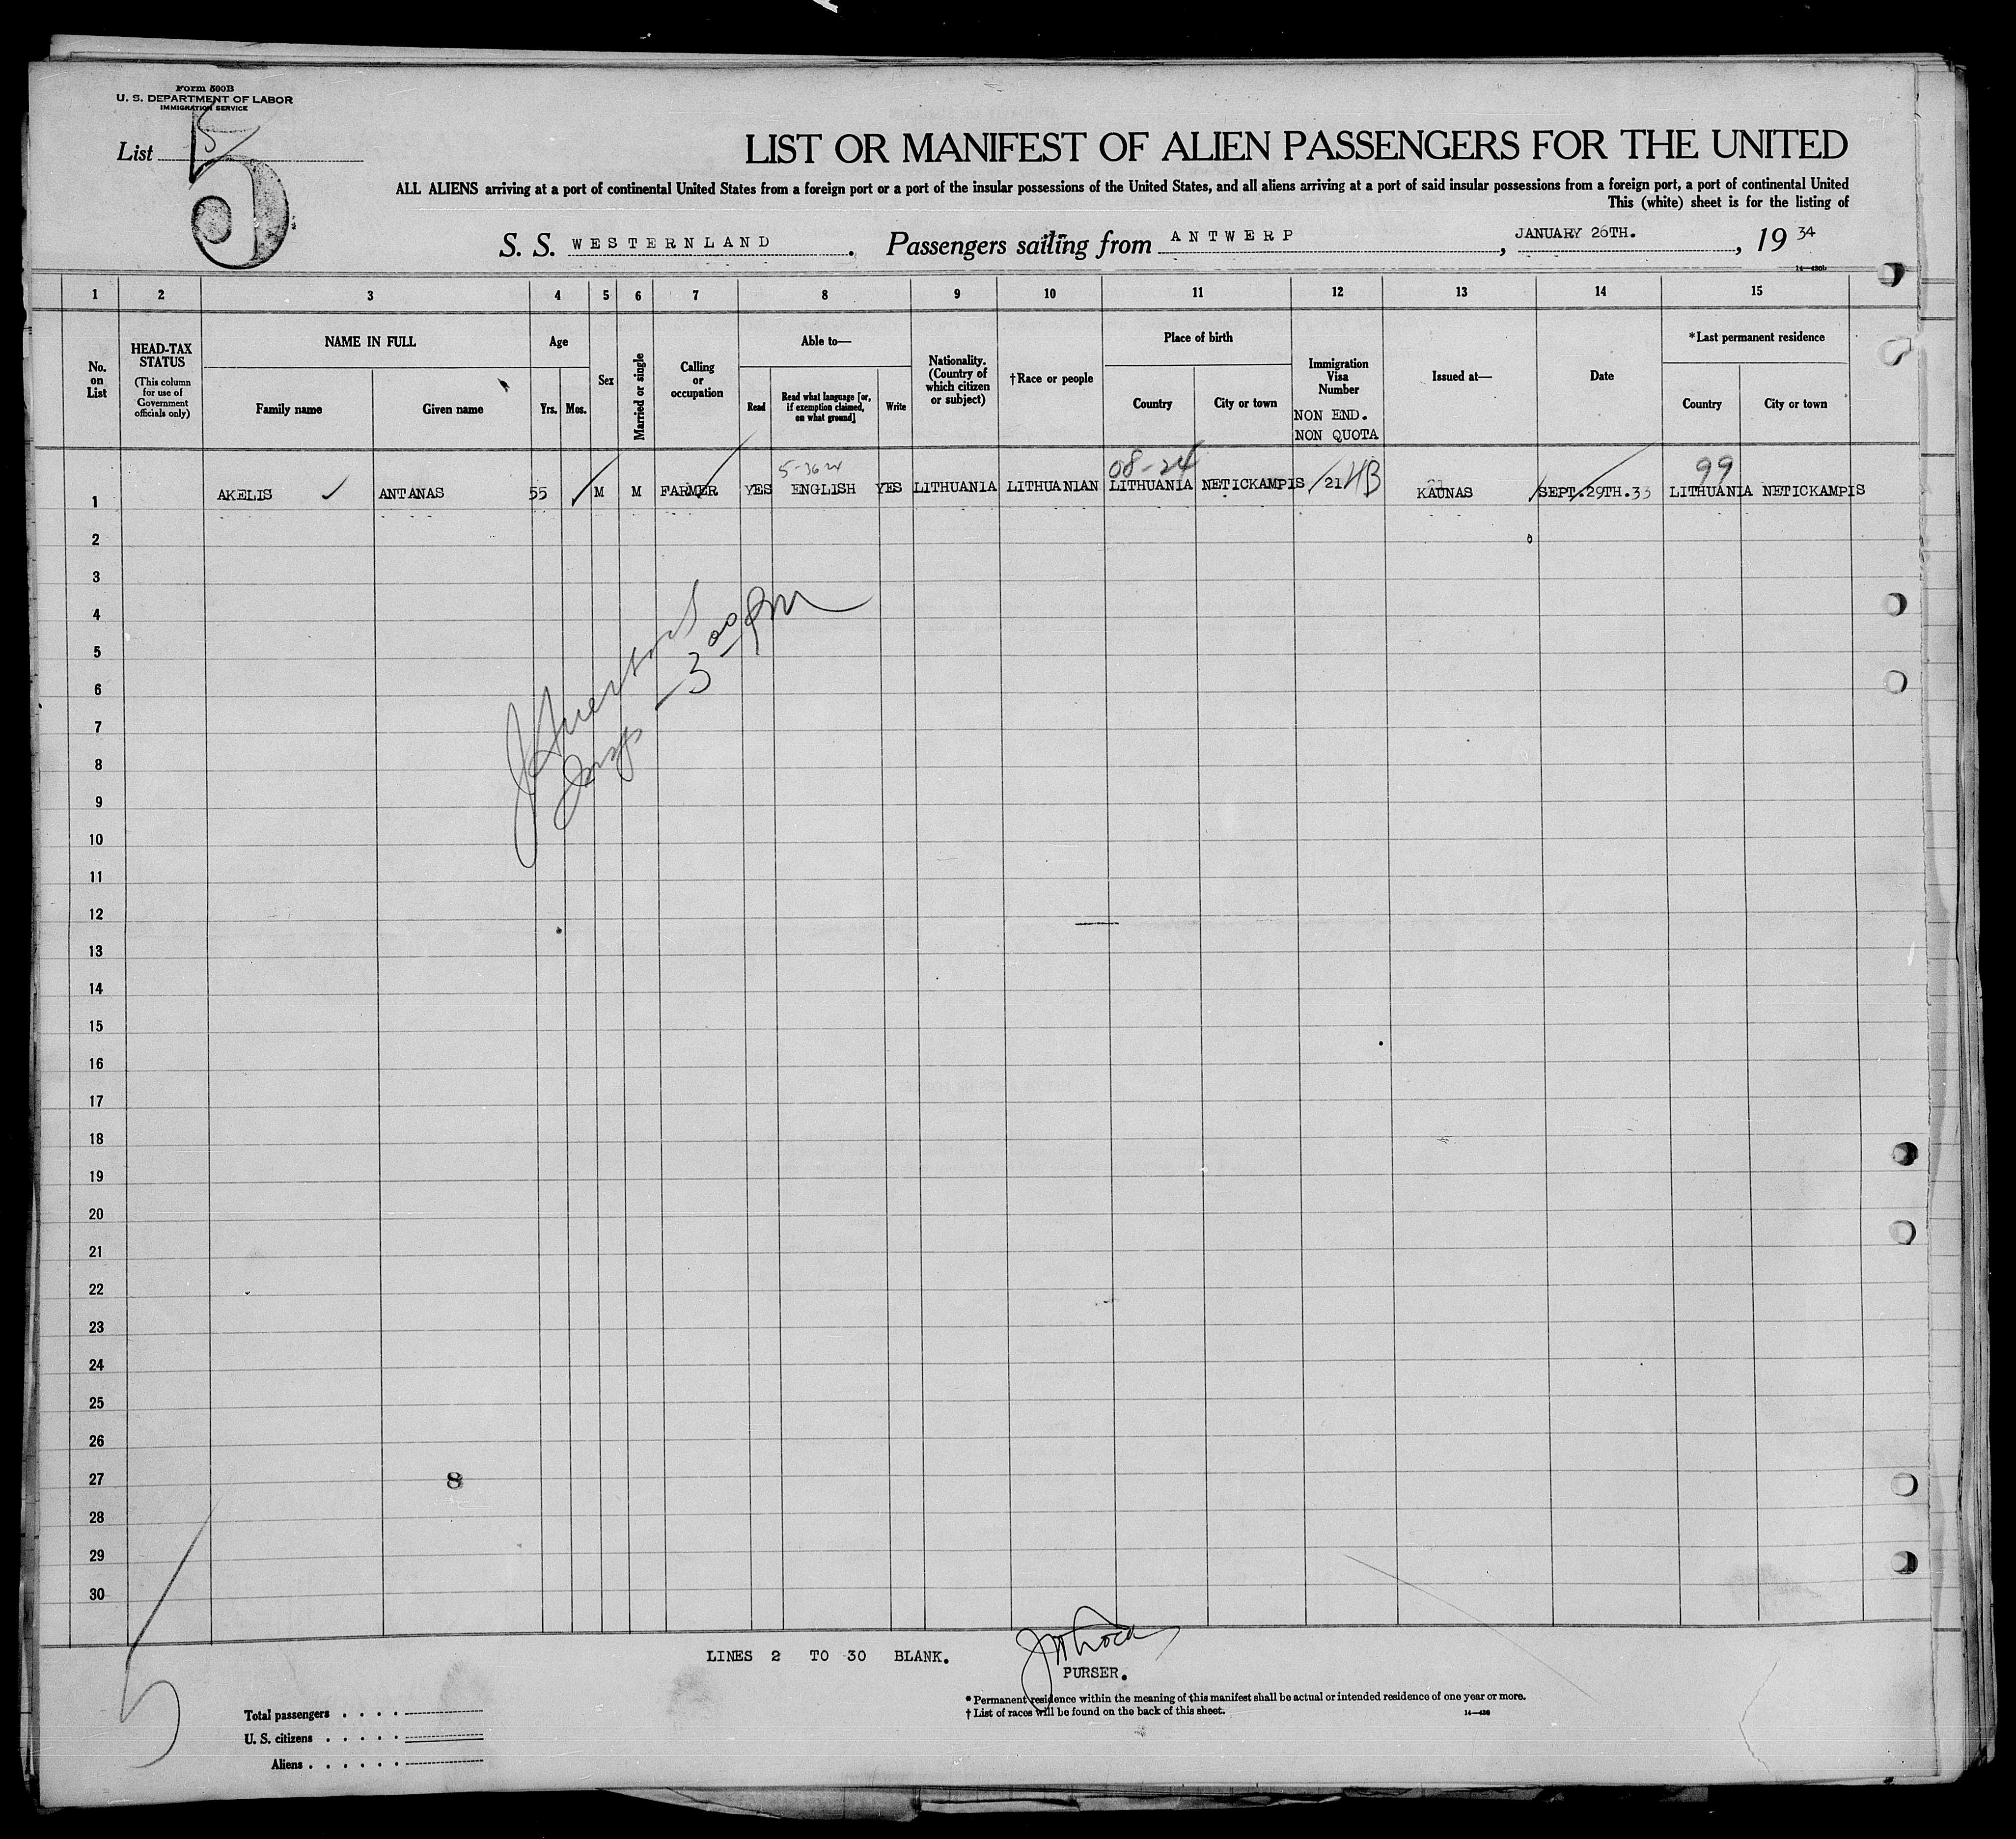 Form 500B
U. S. DEPARTMENT OF LABOR
IMMIGRATION SERVICE
List 5
5
LIST OR MANIFEST OF ALIEN PASSENGERS FOR THE UNITED
ALL ALIENS arriving at a port of continental United States from a foreign port or a port of the insular possessions of the United States, and all aliens arriving at a port of said insular possessions from a foreign port, a port of continental United
This (white) sheet is for the listing of
S. S. WESTERNLAND. Passengers sailing from ANTWERP, JANUARY 26TH., 19 34
14—430b
1 2 3 4 5 6 7 8 9 10 11 12 13 14 15
No. on List
HEAD-TAX STATUS
(This column for use of Government officials only)
NAME IN FULL
Family name Given name
Age
Yrs. Mos.
Sex
Married or single
Calling or occupation
Able to—
Read
Read what language [or, if exemption claimed, on what ground]
Write
Nationality. (Country of which citizen or subject)
†Race or people
Place of birth
Country City or town
Immigration Visa Number
NON END.
NON QUOTA
Issued at—
Date
*Last permanent residence
Country City or town
08-24 99
1 AKELIS ANTANAS 55 M M FARMER YES ENGLISH YES LITHUANIA LITHUANIAN LITHUANIA NETICKAMPIS 21 4B KAUNAS SEPT.29TH.33 LITHUANIA NETICKAMPIS
2
3
4
5
6
7
8
9
10
11
12
13
14
15
16
17
18
19
20
21
22
23
24
25
26
27 8
28
29
30
3 00 PM
LINES 2 TO 30 BLANK.
PURSER.
* Permanent residence within the meaning of this manifest shall be actual or intended residence of one year or more.
† List of races will be found on the back of this sheet.
Total passengers . . . .
U. S. citizens . . . . .
Aliens . . . . . .